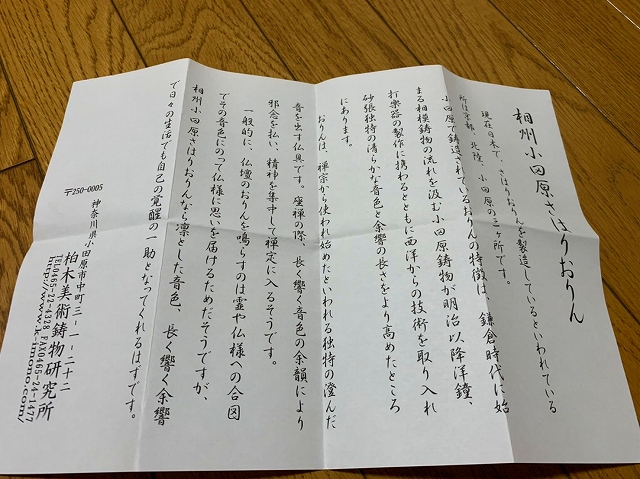 相州小田原さはりおりん
現在日本で、さはりおりんを製造しているといわれている
所は京都、北陸、小田原の三ヶ所です。
小田原で鋳造されているおりんの特徴は、鎌倉時代に始
まる相模鋳物の流れを汲む小田原鋳物が明治以降洋鐘、
打楽器の製作に携わるとともに西洋からの技術を取り入れ
砂張独特の清らかな音色と余響の長さをより高めたところ
にあります。
おりんは、禅宗から使われ始めたといわれる独特の澄んだ
音を出す仏具です。座禅の際、長く響く音色の余韻により
邪念を払い、精神を集中して禅定に入るそうです。
一般的に、仏壇のおりんを鳴らすのは霊や仏様への合図
でその音色にのって仏様に思いを届けるためだそうですが、
相州小田原さはりおりんなら凛とした音色、長く響く余響
で日々の生活でも自己の覚醒の一助となってくれるはずです。
〒250-0005
神奈川県小田原市中町三-一-二十二
柏木美術鋳物研究所
TEL0465-22-4328 FAX0465-24-1477
http://www.k-imono.com/